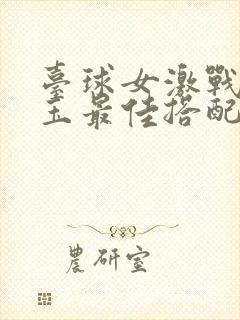 臺球女激戰
王最佳搭配
農研室